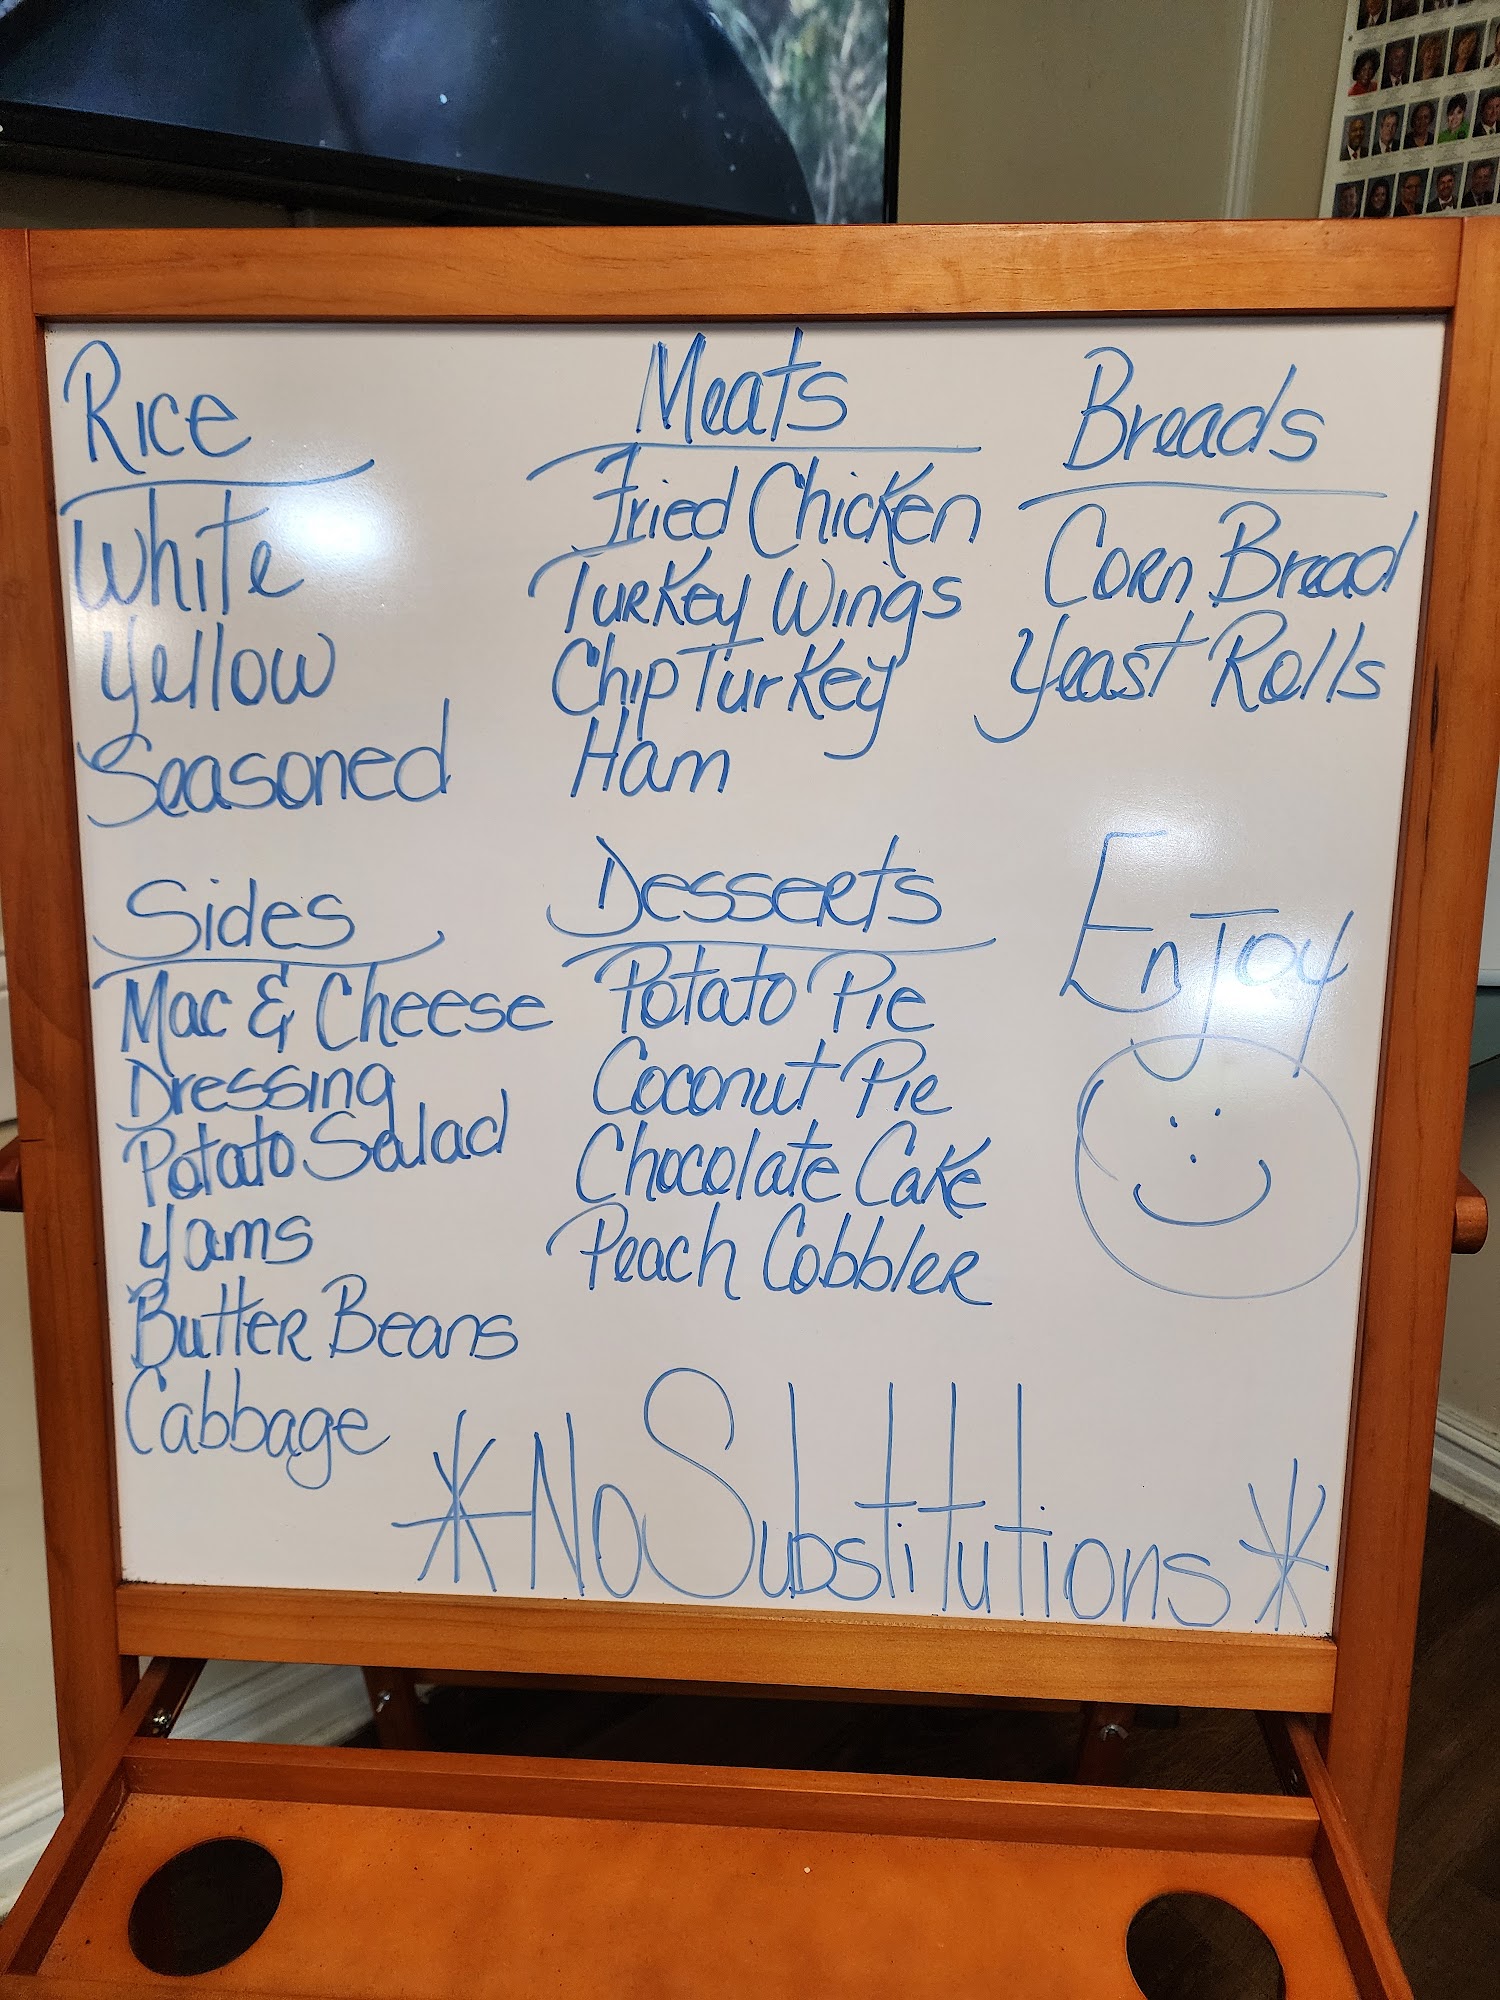 Rice
White
Yellow
Seasoned
Meats
Fried Chicken
Turkey Wings
Chip Turkey
Ham
Breads
Corn Bread
Yeast Rolls
Sides
Mac & Cheese
Dressing
Potato Salad
Yams
Butter Beans
Cabbage
Desserts
Potato Pie
Coconut Pie
Chocolate Cake
Peach Cobbler
Enjoy
*No Substitutions*